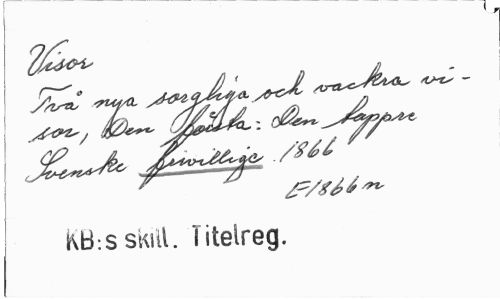 Visor
Två nya sorgliga och vackra vi-
sor, Den första: Den tappre
Svenske friwillige. 1866
E1866n
KB:s skill. Titelreg.